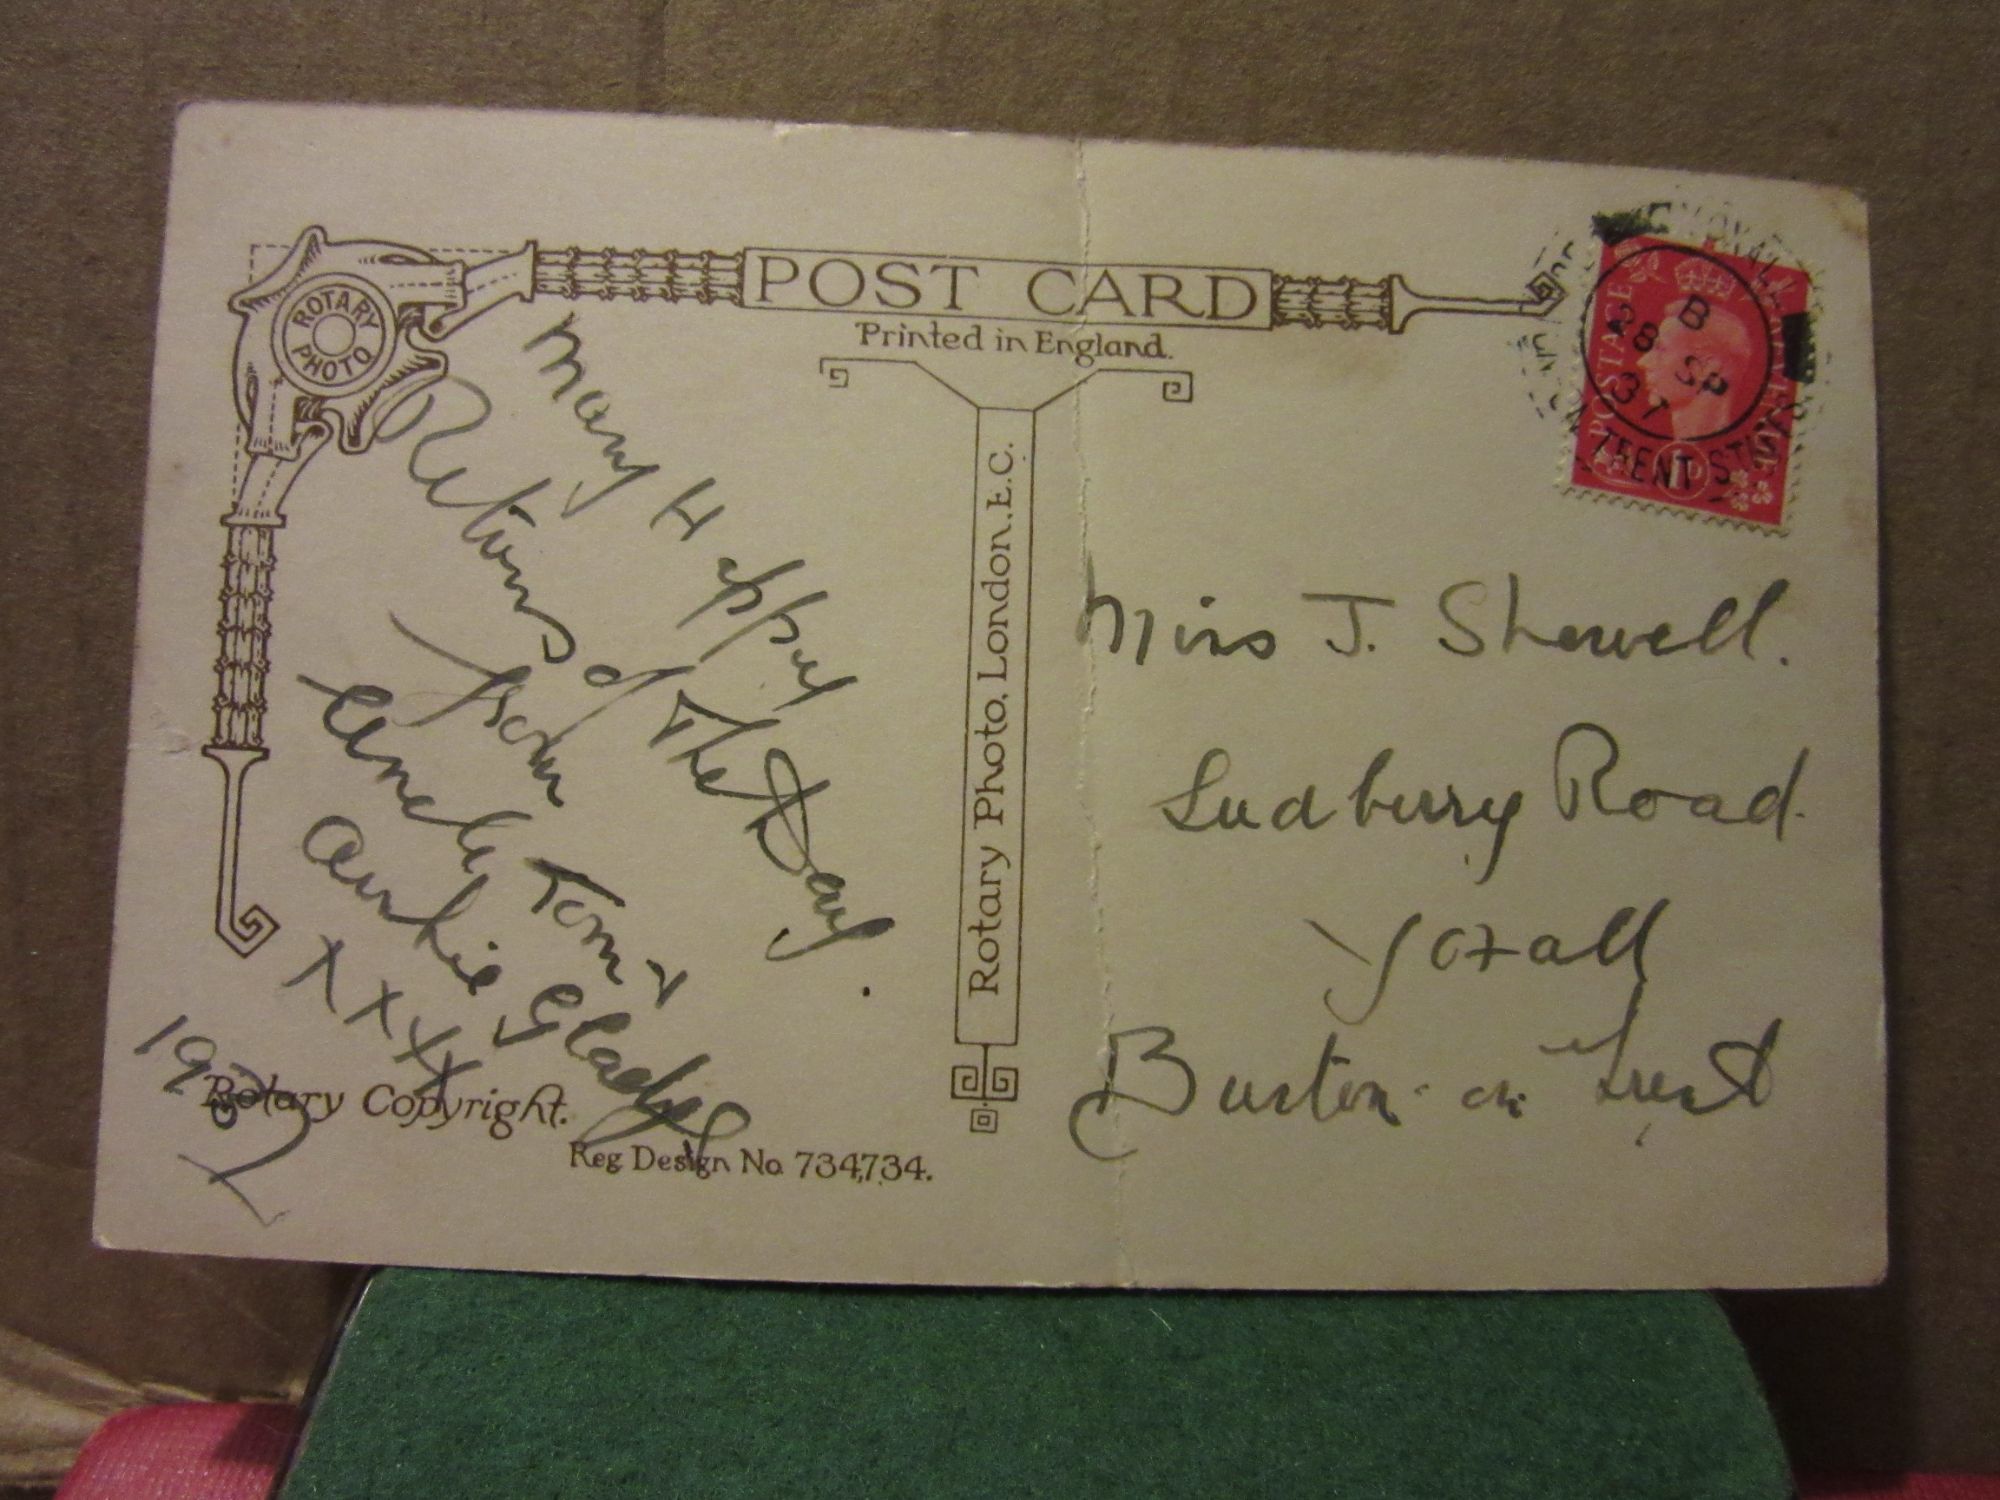 ROTARY PHOTO
POST CARD
Printed in England.
Many Happy
Returns of The Day.
from
Uncle Tom &
Auntie Gladys
XXXX
1937
Rotary Photo, London, E.C.
Rotary Copyright.
Reg. Design No. 734,734.
POSTAGE
B
28 SP
37
ON TRENT STAFFS
Miss J. Shewell.
Sudberry Road.
Yoxall
Burton-on Trent